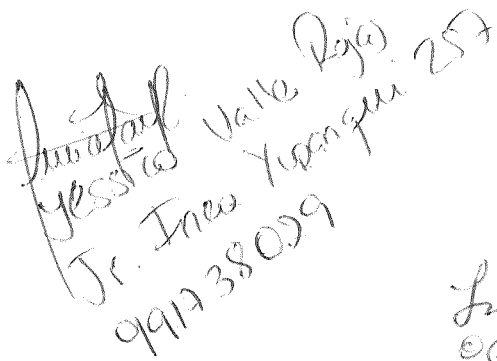 Yessica Valle Rojas
Jr. Inca Yupanqui 257
991738029